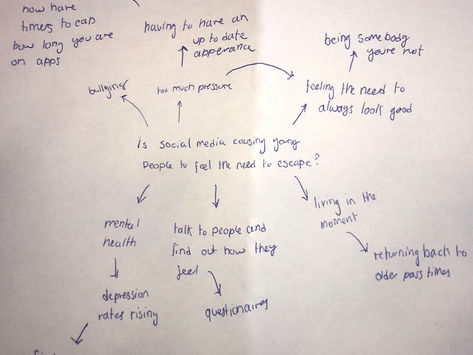 now have
timers to cap
how long you are
on apps
having to have an
up to date
apperance
being somebody
you're not
bullying
too much pressure
feeling the need to
always look good
Is social media causing young
people to feel the need to escape?
mental
health
talk to people and
find out how they
feel
living in the
moment
depression
rates rising
questionaires
returning back to
older pass times